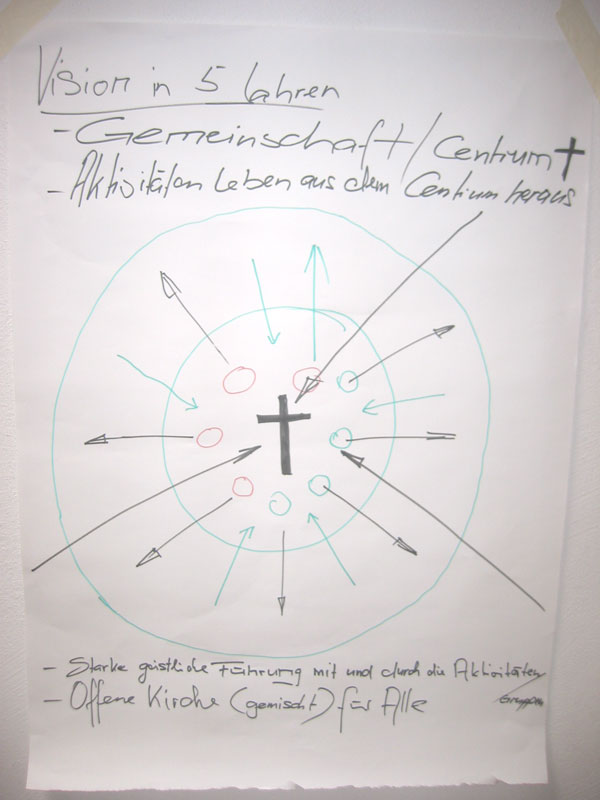 Vision in 5 Jahren
- Gemeinschaft / Centrum ✝
- Aktivitäten Leben aus dem Centrum heraus
- Starke geistliche Führung mit und durch die Aktivitäten
/ Gruppen
- Offene Kirche (gemischt) für Alle